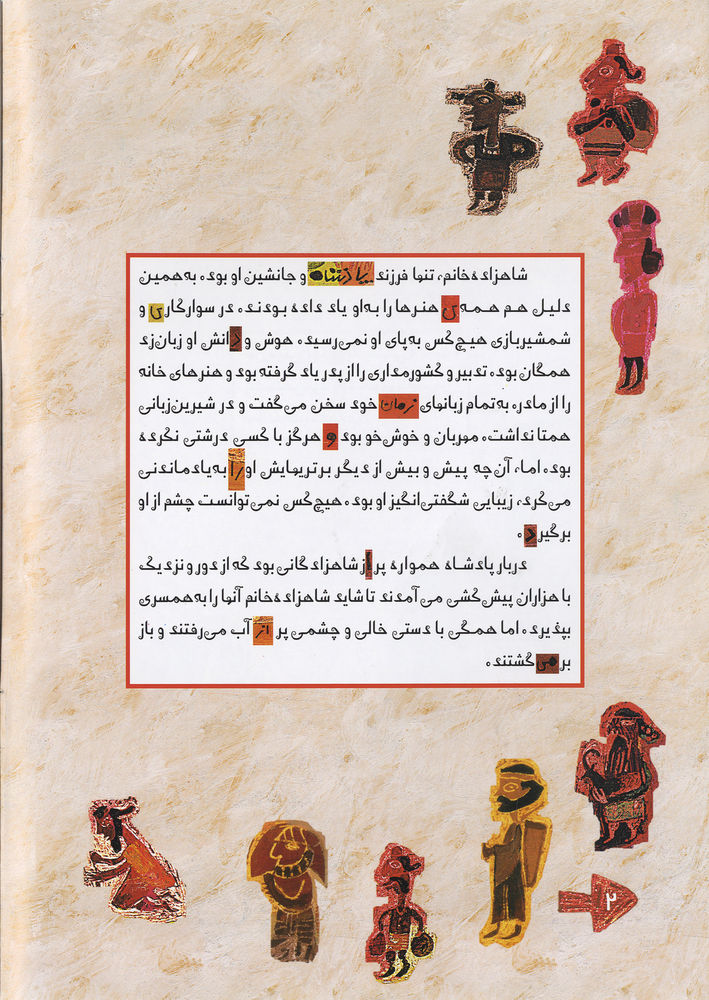 شاهزاده‌خانم، تنها فرزند پادشاه و جانشین او بود، به‌همین
دلیل هم همه‌ی هنرها را به‌او یاد داده بودند، در سوارکاری و
شمشیربازی هیچ‌کس به‌پای او نمی‌رسید، هوش و دانش او زبان‌زد
همگان بود، تدبیر و کشورمداری را از پدر یاد گرفته بود و هنرهای خانه
را از مادر، به‌تمام زبانهای زمان خود سخن می‌گفت و در شیرین‌زبانی
همتا نداشت، مهربان و خوش‌خو بود و هرگز با کسی درشتی نکرده
بود، اما، آن‌چه پیش و بیش از دیگر برتریهایش او را به‌یادماندنی
می‌کرد، زیبایی شگفتی‌انگیز او بود، هیچ‌کس نمی‌توانست چشم از او
برگیرد،
دربار پادشاه همواره پر از شاهزادگانی بود که از دور و نزدیک
با هزاران پیش‌کشی می‌آمدند تا شاید شاهزاده‌خانم آنها را به‌همسری
بپذیرد، اما همگی با دستی خالی و چشمی پر از آب می‌رفتند و باز
بر می‌گشتند،
۲